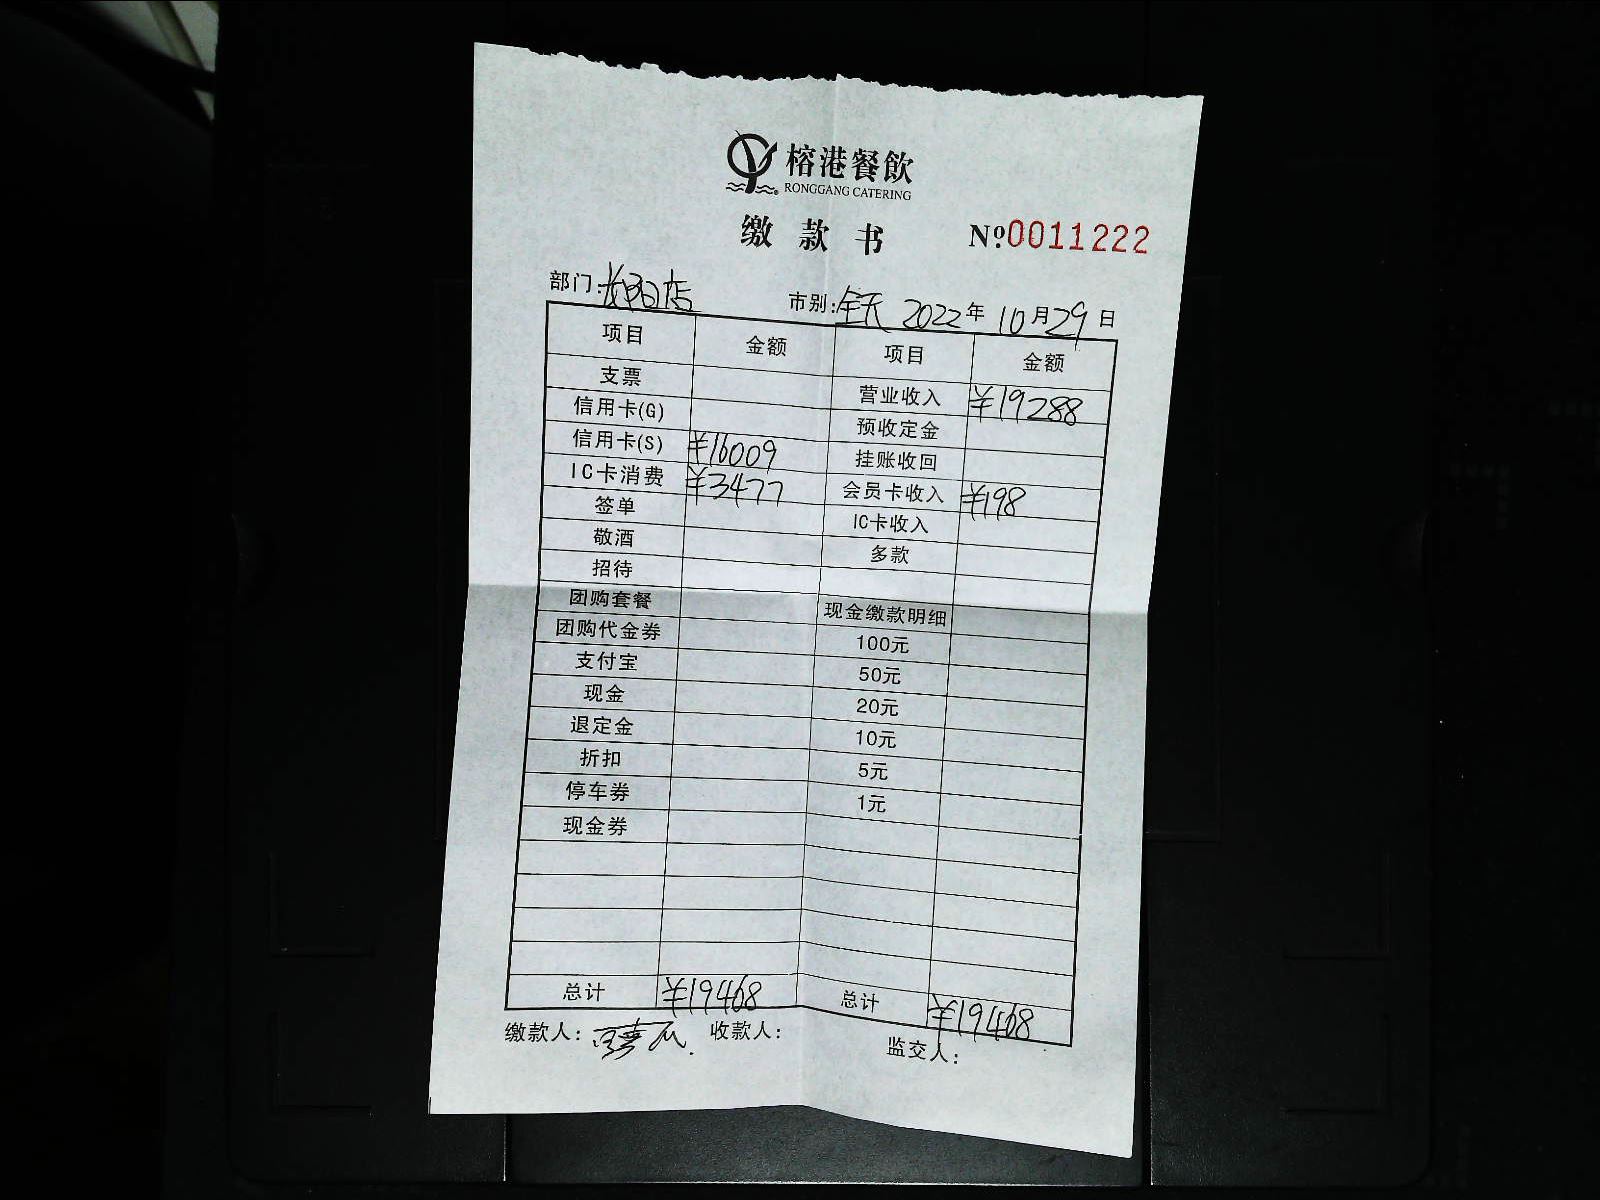 榕港餐飲
RONGGANG CATERING
缴款书 №0011222
部门:长阳店 市别:全天 2022年10月29日
项目 金额 项目 金额
支票 营业收入 ¥19288
信用卡(G) 预收定金
信用卡(S) ¥16009 挂账收回
IC卡消费 ¥3477 会员卡收入 ¥198
签单 IC卡收入
敬酒 多款
招待
团购套餐 现金缴款明细
团购代金券 100元
支付宝 50元
现金 20元
退定金 10元
折扣 5元
停车券 1元
现金券
总计 ¥19468 总计 ¥19468
缴款人: 收款人: 监交人: